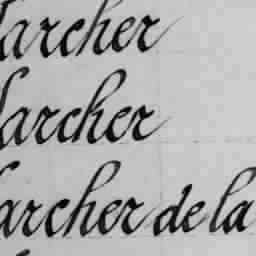 archer
archer
archer de la